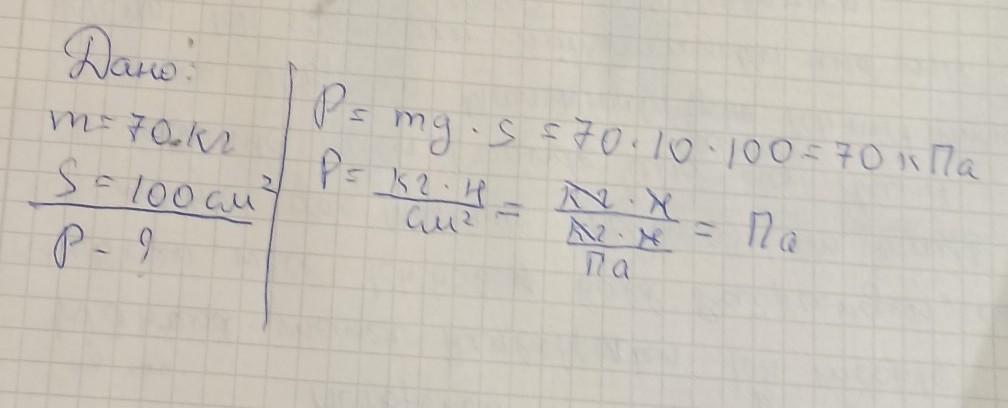 Дано:
m = 70 кг
S = 100 см²
P - ?
P = mg · s = 70 · 10 · 100 = 70 кПа
P = кг · н / см² = кг · н / кг · н / Па = Па